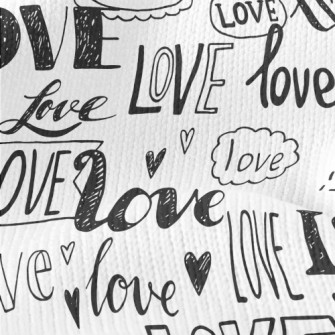 LOVE
LOVE
love
LOVE
Love
love
LOVE
love
LOVE
love